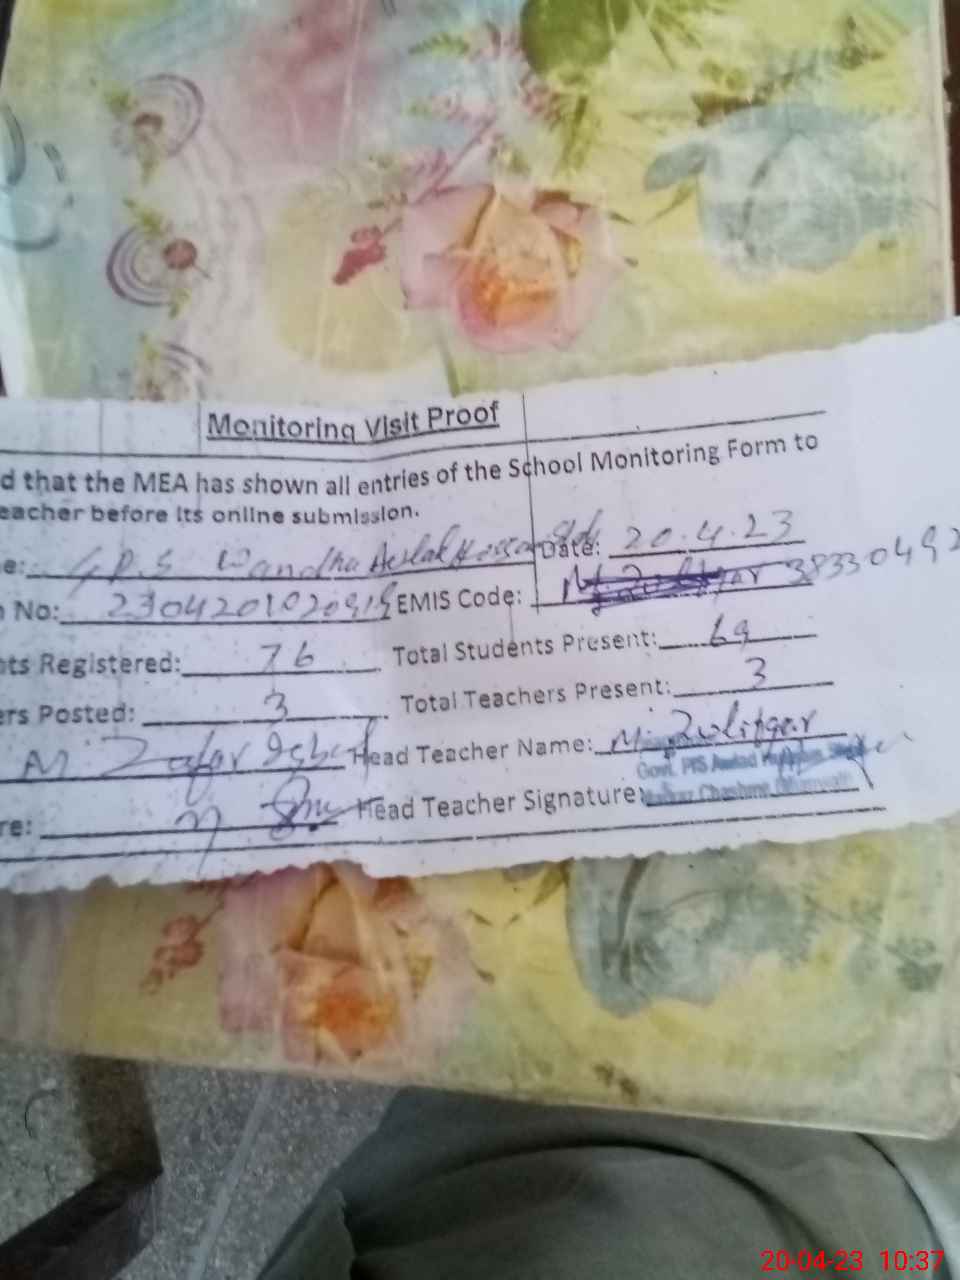 Monitoring Visit Proof
d that the MEA has shown all entries of the School Monitoring Form to
eacher before its online submission.
e: G.P.S Wandha Date: 20.4.23
No: EMIS Code: 38330492
nts Registered: 76 Total Students Present: 69
ers Posted: 3 Total Teachers Present: 3
M. Zafar Iqbal Head Teacher Name: M. Zulifqar
Govt. P/S
re: Head Teacher Signature:
20-04-23 10:37